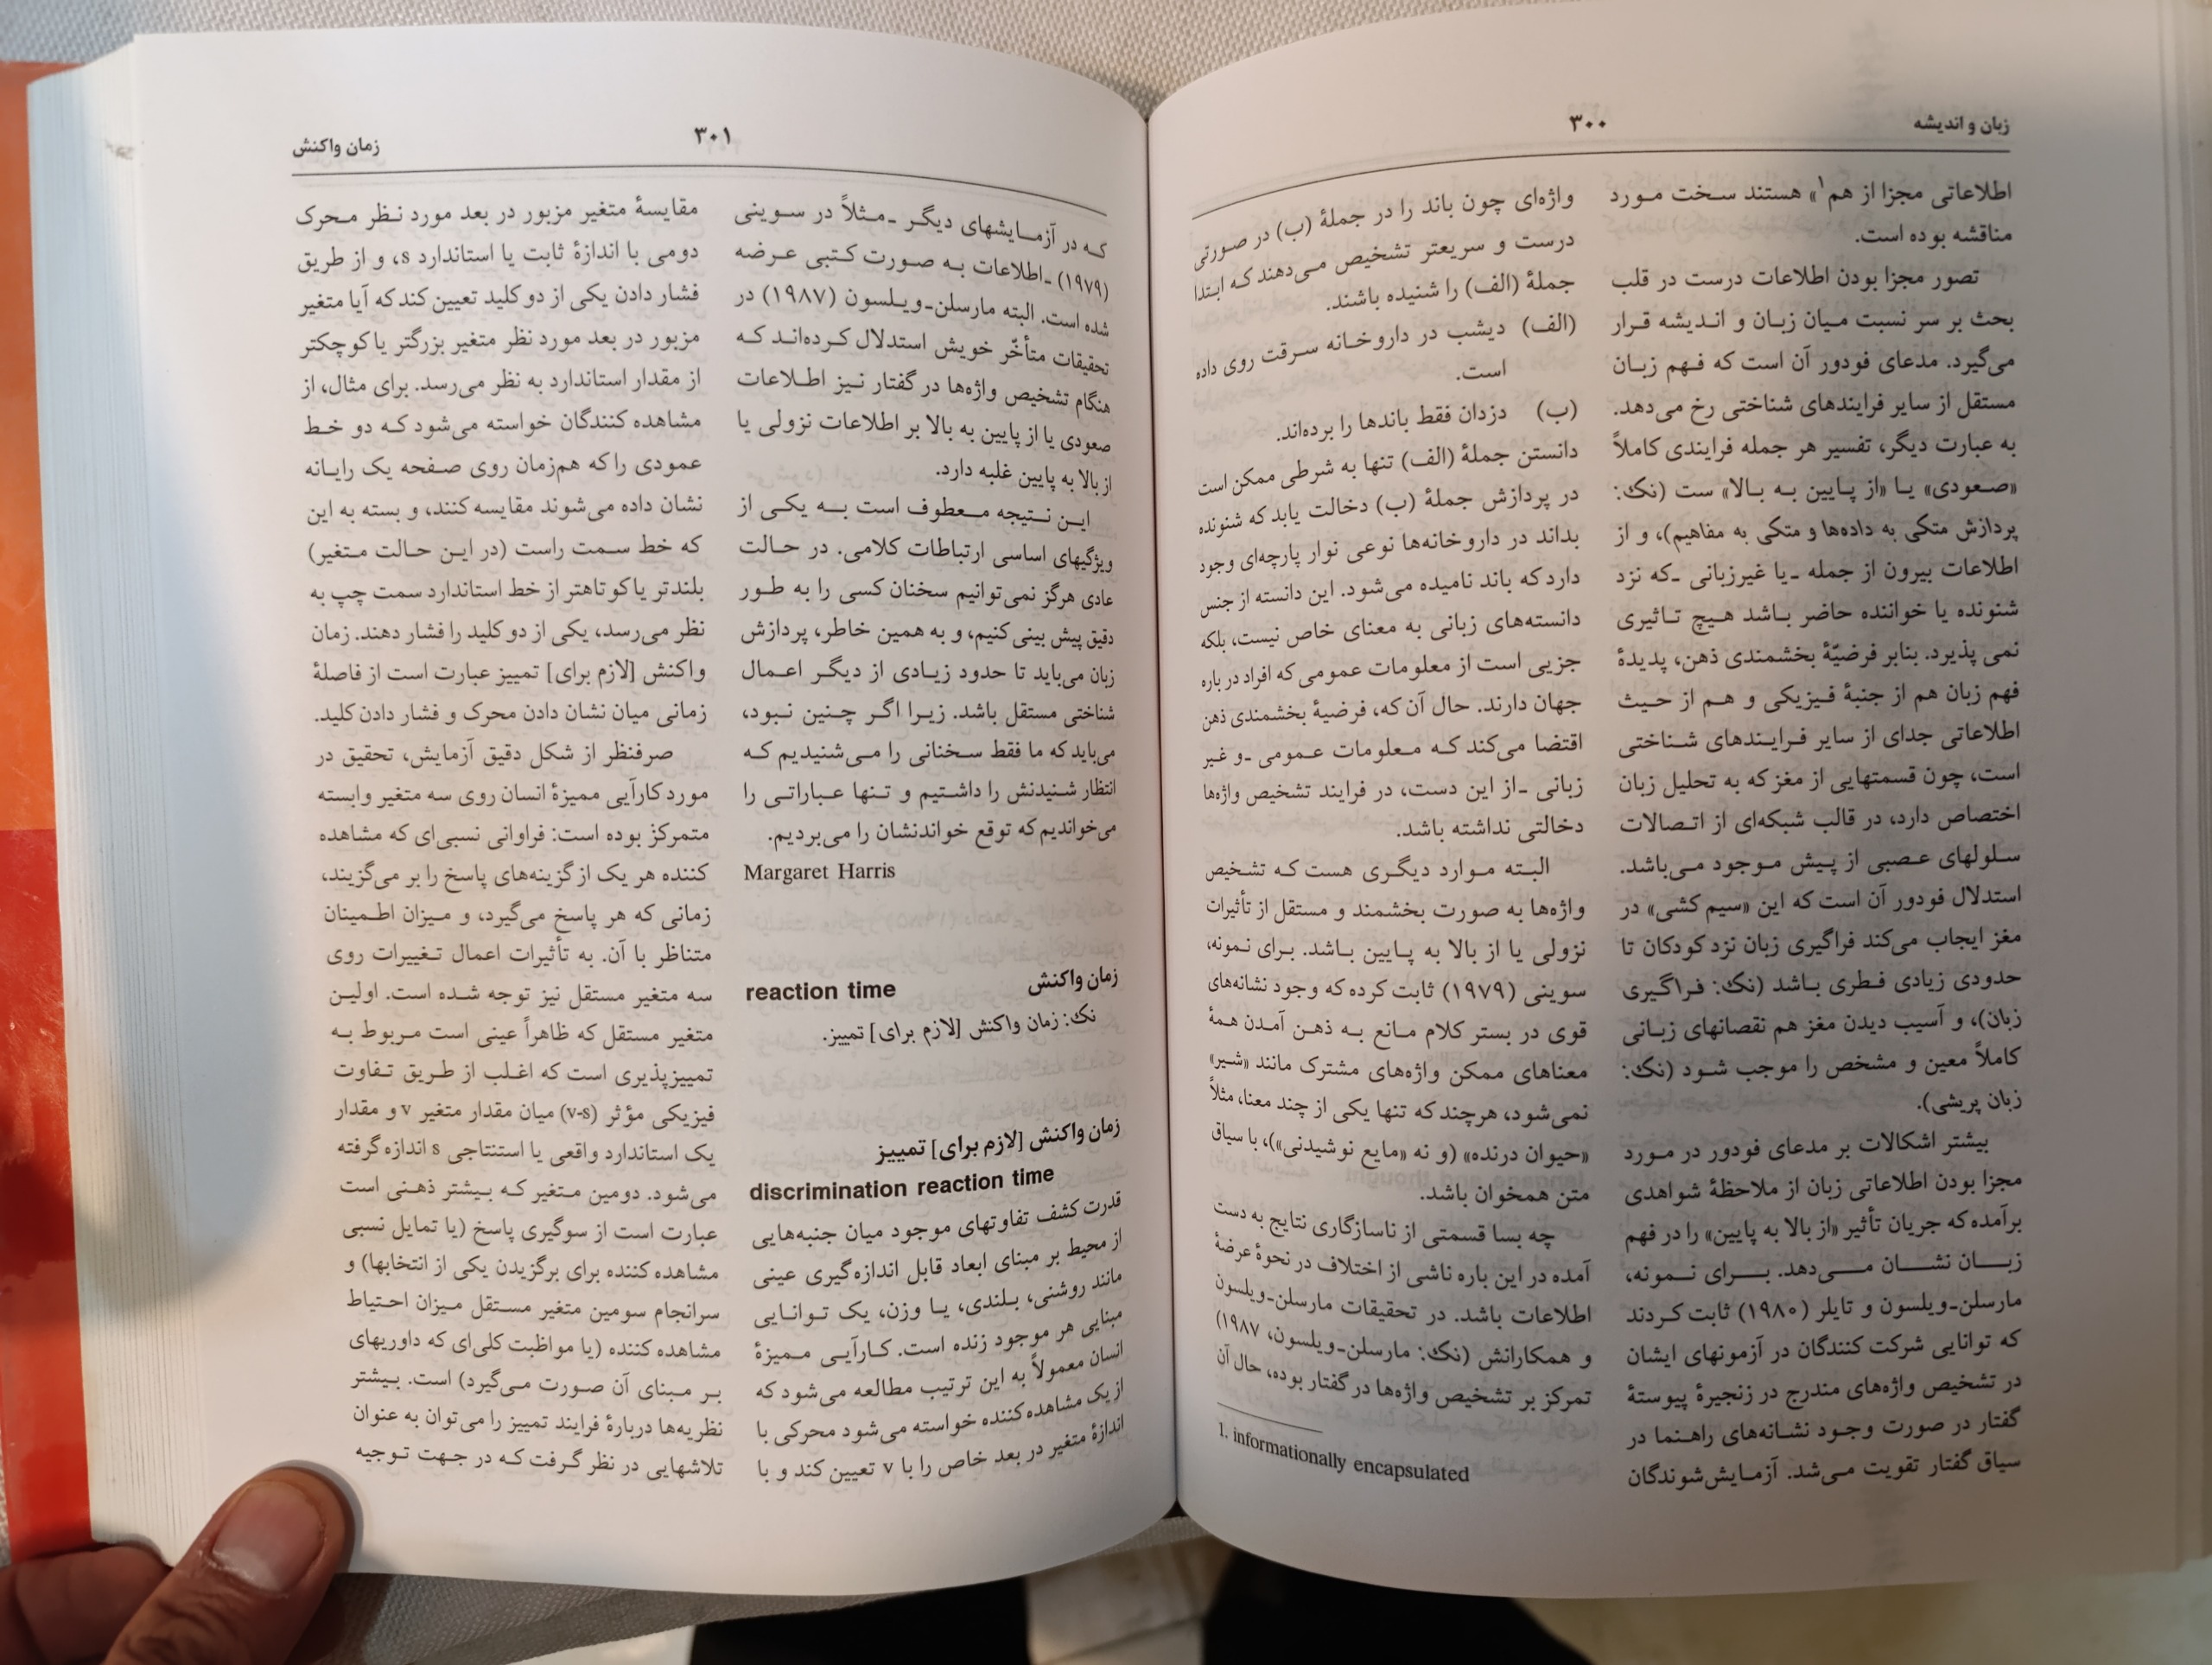 زبان و اندیشه
۳۰۰
اطلاعاتی مجزا از هم۱» هستند سخت مورد
مناقشه بوده است.
تصور مجزا بودن اطلاعات درست در قلب
بحث بر سر نسبت میان زبان و اندیشه قرار
می‌گیرد. مدعای فودور آن است که فهم زبان
مستقل از سایر فرایندهای شناختی رخ می‌دهد.
به عبارت دیگر، تفسیر هر جمله فرایندی کاملاً
«صعودی» یا «از پایین به بالا» ست (نک:
پردازش متکی به داده‌ها و متکی به مفاهیم)، و از
اطلاعات بیرون از جمله ـ یا غیرزبانی ـ که نزد
شنونده یا خواننده حاضر باشد هیچ تاثیری
نمی پذیرد. بنابر فرضیّهٔ بخشمندی ذهن، پدیدهٔ
فهم زبان هم از جنبهٔ فیزیکی و هم از حیث
اطلاعاتی جدای از سایر فرایندهای شناختی
است، چون قسمتهایی از مغز که به تحلیل زبان
اختصاص دارد، در قالب شبکه‌ای از اتصالات
سلولهای عصبی از پیش موجود می‌باشد.
استدلال فودور آن است که این «سیم کشی» در
مغز ایجاب می‌کند فراگیری زبان نزد کودکان تا
حدودی زیادی فطری باشد (نک: فراگیری
زبان)، و آسیب دیدن مغز هم نقصانهای زبانی
کاملاً معین و مشخص را موجب شود (نک:
زبان پریشی).
بیشتر اشکالات بر مدعای فودور در مورد
مجزا بودن اطلاعاتی زبان از ملاحظهٔ شواهدی
برآمده که جریان تأثیر «از بالا به پایین» را در فهم
زبان نشان می‌دهد. برای نمونه،
مارسلن-ویلسون و تایلر (۱۹۸۰) ثابت کردند
که توانایی شرکت کنندگان در آزمونهای ایشان
در تشخیص واژه‌های مندرج در زنجیرهٔ پیوستهٔ
گفتار در صورت وجود نشانه‌های راهنما در
سیاق گفتار تقویت می‌شد. آزمایش‌شوندگان
واژه‌ای چون باند را در جملهٔ (ب) در صورتی
درست و سریعتر تشخیص می‌دهند که ابتدا
جملهٔ (الف) را شنیده باشند.
(الف) دیشب در داروخانه سرقت روی داده
است.
(ب) دزدان فقط باندها را برده‌اند.
دانستن جملهٔ (الف) تنها به شرطی ممکن است
در پردازش جملهٔ (ب) دخالت یابد که شنونده
بداند در داروخانه‌ها نوعی نوار پارچه‌ای وجود
دارد که باند نامیده می‌شود. این دانسته از جنس
دانسته‌های زبانی به معنای خاص نیست، بلکه
جزیی است از معلومات عمومی که افراد در باره
جهان دارند. حال آن که، فرضیهٔ بخشمندی ذهن
اقتضا می‌کند که معلومات عمومی ـ و غیر
زبانی ـ از این دست، در فرایند تشخیص واژه‌ها
دخالتی نداشته باشد.
البته موارد دیگری هست که تشخیص
واژه‌ها به صورت بخشمند و مستقل از تأثیرات
نزولی یا از بالا به پایین باشد. برای نمونه،
سوینی (۱۹۷۹) ثابت کرده که وجود نشانه‌های
قوی در بستر کلام مانع به ذهن آمدن همهٔ
معناهای ممکن واژه‌های مشترک مانند «شیر»
نمی‌شود، هرچند که تنها یکی از چند معنا، مثلاً
«حیوان درنده» (و نه «مایع نوشیدنی»)، با سیاق
متن همخوان باشد.
چه بسا قسمتی از ناسازگاری نتایج به دست
آمده در این باره ناشی از اختلاف در نحوهٔ عرضهٔ
اطلاعات باشد. در تحقیقات مارسلن-ویلسون
و همکارانش (نک: مارسلن-ویلسون، ۱۹۸۷)
تمرکز بر تشخیص واژه‌ها در گفتار بوده، حال آن
1. informationally encapsulated
۳۰۱
زمان واکنش
که در آزمایشهای دیگر ـ مثلاً در سوینی
(۱۹۷۹) ـ اطلاعات به صورت کتبی عرضه
شده است. البته مارسلن-ویلسون (۱۹۸۷) در
تحقیقات متأخّر خویش استدلال کرده‌اند که
هنگام تشخیص واژه‌ها در گفتار نیز اطلاعات
صعودی یا از پایین به بالا بر اطلاعات نزولی یا
از بالا به پایین غلبه دارد.
این نتیجه معطوف است به یکی از
ویژگیهای اساسی ارتباطات کلامی. در حالت
عادی هرگز نمی‌توانیم سخنان کسی را به طور
دقیق پیش بینی کنیم، و به همین خاطر، پردازش
زبان می‌باید تا حدود زیادی از دیگر اعمال
شناختی مستقل باشد. زیرا اگر چنین نبود،
می‌باید که ما فقط سخنانی را می‌شنیدیم که
انتظار شنیدنش را داشتیم و تنها عباراتی را
می‌خواندیم که توقع خواندنشان را می‌بردیم.
Margaret Harris
زمان واکنش reaction time
نک: زمان واکنش [لازم برای] تمییز.
زمان واکنش [لازم برای] تمییز
discrimination reaction time
قدرت کشف تفاوتهای موجود میان جنبه‌هایی
از محیط بر مبنای ابعاد قابل اندازه‌گیری عینی
مانند روشنی، بلندی، یا وزن، یک توانایی
مبنایی هر موجود زنده است. کارآیی ممیزهٔ
انسان معمولاً به این ترتیب مطالعه می‌شود که
از یک مشاهده کننده خواسته می‌شود محرکی با
اندازهٔ متغیر در بعد خاص را با v تعیین کند و با
مقایسهٔ متغیر مزبور در بعد مورد نظر محرک
دومی با اندازهٔ ثابت یا استاندارد s، و از طریق
فشار دادن یکی از دو کلید تعیین کند که آیا متغیر
مزبور در بعد مورد نظر متغیر بزرگتر یا کوچکتر
از مقدار استاندارد به نظر می‌رسد. برای مثال، از
مشاهده کنندگان خواسته می‌شود که دو خط
عمودی را که هم‌زمان روی صفحه یک رایانه
نشان داده می‌شوند مقایسه کنند، و بسته به این
که خط سمت راست (در این حالت متغیر)
بلندتر یا کوتاهتر از خط استاندارد سمت چپ به
نظر می‌رسد، یکی از دو کلید را فشار دهند. زمان
واکنش [لازم برای] تمییز عبارت است از فاصلهٔ
زمانی میان نشان دادن محرک و فشار دادن کلید.
صرفنظر از شکل دقیق آزمایش، تحقیق در
مورد کارآیی ممیزهٔ انسان روی سه متغیر وابسته
متمرکز بوده است: فراوانی نسبی‌ای که مشاهده
کننده هر یک از گزینه‌های پاسخ را بر می‌گزیند،
زمانی که هر پاسخ می‌گیرد، و میزان اطمینان
متناظر با آن. به تأثیرات اعمال تغییرات روی
سه متغیر مستقل نیز توجه شده است. اولین
متغیر مستقل که ظاهراً عینی است مربوط به
تمییزپذیری است که اغلب از طریق تفاوت
فیزیکی مؤثر (v-s) میان مقدار متغیر v و مقدار
یک استاندارد واقعی یا استنتاجی s اندازه گرفته
می‌شود. دومین متغیر که بیشتر ذهنی است
عبارت است از سوگیری پاسخ (یا تمایل نسبی
مشاهده کننده برای برگزیدن یکی از انتخابها) و
سرانجام سومین متغیر مستقل میزان احتیاط
مشاهده کننده (یا مواظبت کلی‌ای که داوریهای
بر مبنای آن صورت می‌گیرد) است. بیشتر
نظریه‌ها دربارهٔ فرایند تمییز را می‌توان به عنوان
تلاشهایی در نظر گرفت که در جهت توجیه